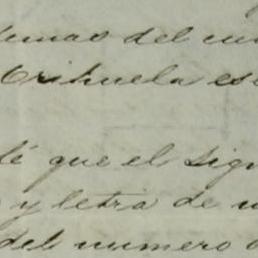 demas del
Orihuela es
que el sig
y letra de
del numero